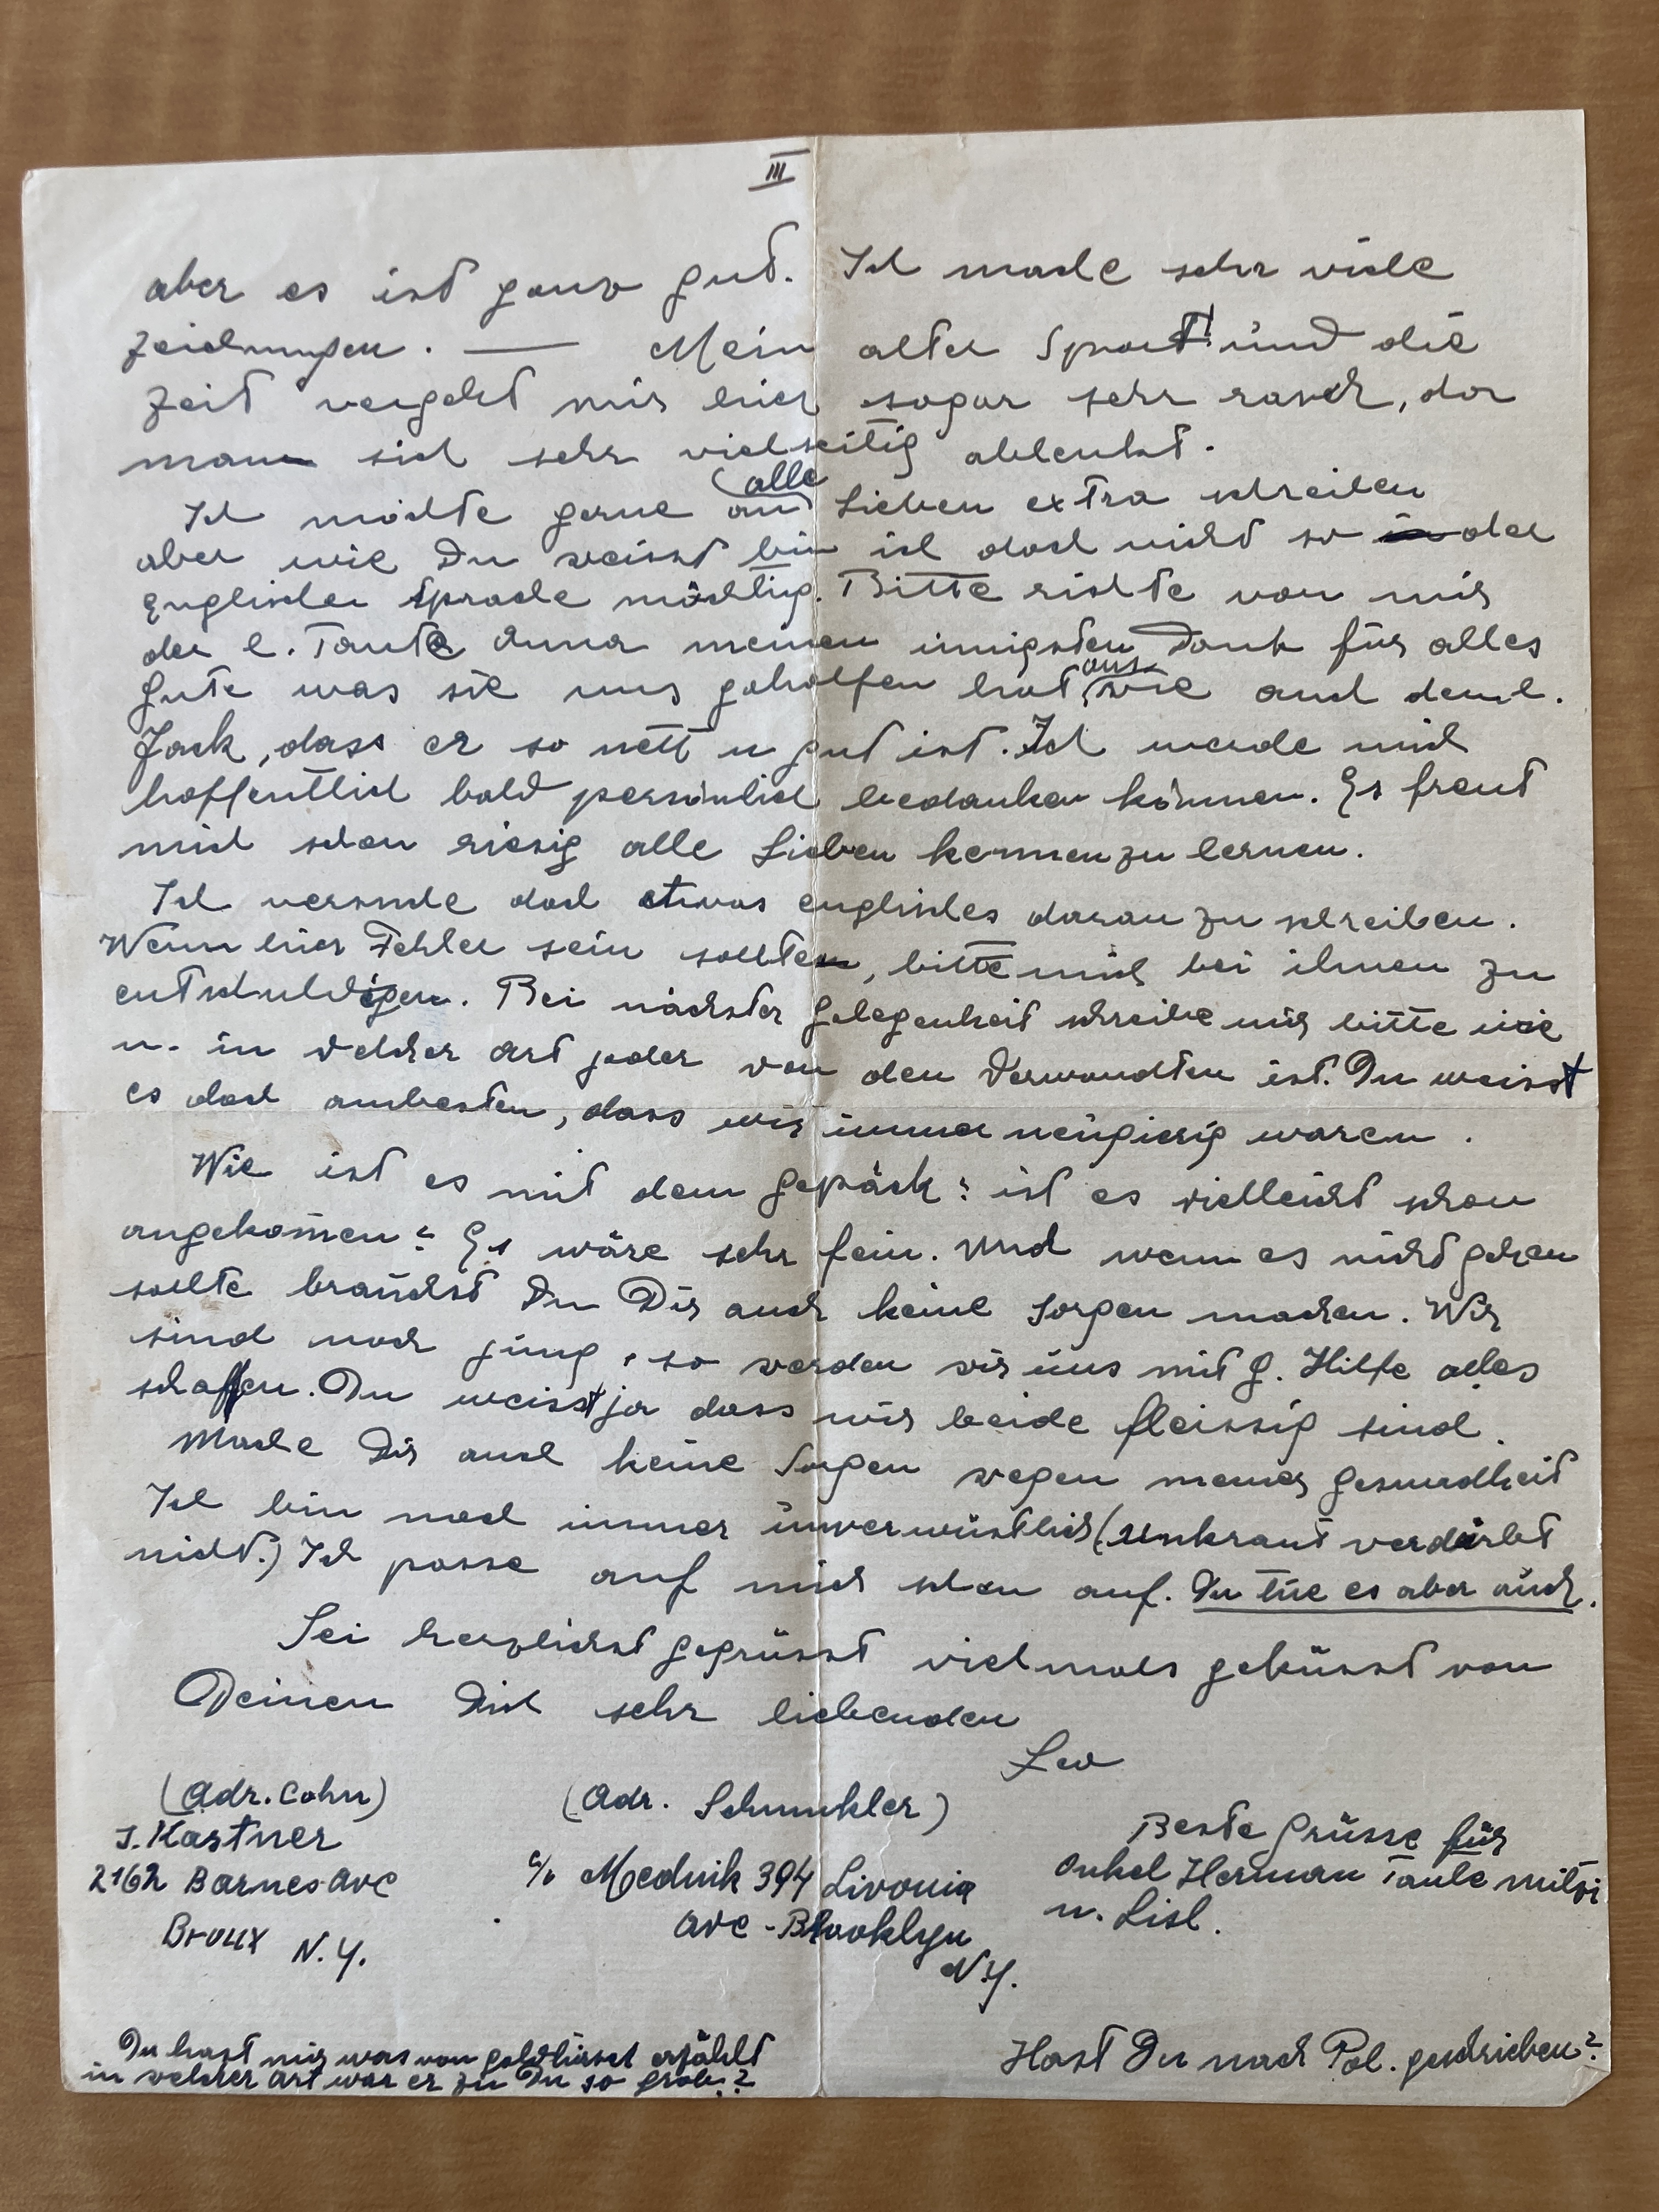 III
aber es ist ganz gut. Ich mache sehr viele
Zeichnungen. — Mein alter Sport! und die
Zeit vergeht mir hier sogar sehr rasch, da
man sich sehr vielseitig ablenkt.
Ich möchte gerne an alle Lieben extra schreiben
aber wie Du weisst bin ich doch nicht so der
Englischen Sprache mächtig. Bitte richte von mir
der l. Tante Anna meinen innigsten Dank für alles
Gute was sie uns geholfen hat, wie auch dem l.
Jack, dass er so nett u gut ist. Ich werde mich
hoffentlich bald persönlich bedanken können. Es freut
mich schon riesig alle Lieben kennenzulernen.
Ich versuche doch etwas englisches daran zu schreiben.
Wenn hier Fehler sein sollte, bitte mich bei ihnen zu
entschuldigen. Bei nächster Gelegenheit schreibe mir bitte wie
u. in welcher Art jeder von den Verwandten ist. Du weisst
es doch ambesten, dass wir immer neugierig waren.
Wie ist es mit dem Gepäck? ist es vielleicht schon
angekom̄en? Es wäre sehr fein. Und wenn es nicht gehen
sollte brauchst Du Dir auch keine Sorgen machen. Wir
sind noch jung, so werden wir uns mit G. Hilfe alles
schaffen. Du weisst ja dass wir beide fleissig sind.
Mache Dir auch keine Sorgen wegen meiner Gesundheit
Ich bin noch immer unverwüstlich (Unkraut verdirbt
nicht.) Ich passe auf mich schon auf. Du tue es aber auch.
Sei herzlichst gegrüsst vielmals geküsst von
Deinen Dich sehr liebenden
Leo
(Adr. Cohn)
J. Kastner
2162 Barnes Ave
Bronx N.Y.
(Adr. Schmukler)
c/o Mednik 394 Livonia
Ave - Brooklyn
N.Y.
Beste Grüsse für
Onkel Herman Tante Mitzi
u. Lisl.
Du hast mir was von erzählt
in welcher Art war er zu Du so grob?
Hast Du nach Pol. geschrieben?